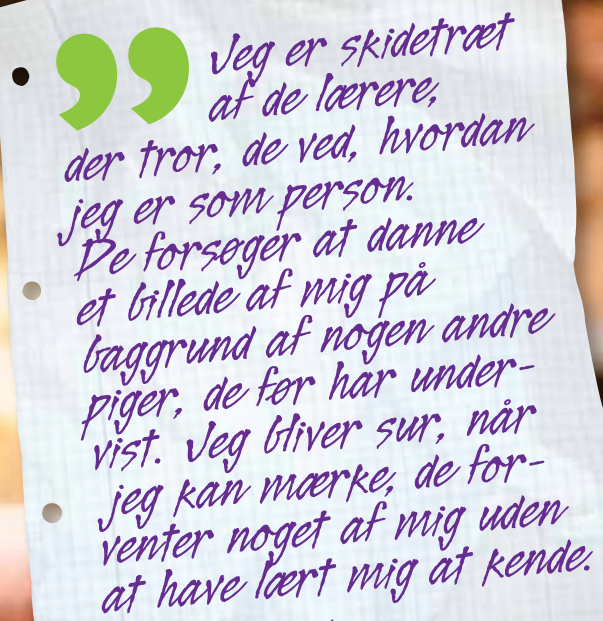 ”
Jeg er skidetræt
af de lærere,
der tror, de ved, hvordan
jeg er som person.
De forsøger at danne
et billede af mig på
baggrund af nogen andre
piger, de før har under-
vist. Jeg bliver sur, når
jeg kan mærke, de for-
venter noget af mig uden
at have lært mig at kende.